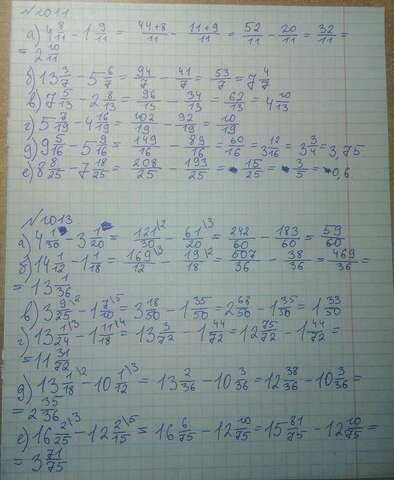 №1011
а) 4 8/11 - 1 9/11 = (44+8)/11 - (11+9)/11 = 52/11 - 20/11 = 32/11 =
= 2 10/11
б) 13 3/7 - 5 6/7 = 94/7 - 41/7 = 53/7 = 7 4/7
в) 7 5/13 - 2 8/13 = 96/13 - 34/13 = 62/13 = 4 10/13
г) 5 7/19 - 4 16/19 = 102/19 - 92/19 = 10/19
д) 9 5/16 - 5 9/16 = 149/16 - 89/16 = 60/16 = 3 12/16 = 3 3/4 = 3,75
е) 8 8/25 - 7 18/25 = 208/25 - 193/25 = 15/25 = 3/5 = 0,6
№1013
а) 4 1/30 - 3 1/20 = 121\2/30 - 61\3/20 = 242/60 - 183/60 = 59/60
б) 14 1/12 - 1 1/18 = 169\3/12 - 19\2/18 = 507/36 - 38/36 = 469/36 =
= 13 1/36
в) 3 9\2/25 - 1 7\5/10 = 3 18/50 - 1 35/50 = 2 68/50 - 1 35/50 = 1 33/50
г) 13 1\3/24 - 1 11\4/18 = 13 3/72 - 1 44/72 = 12 75/72 - 1 44/72 =
= 11 31/72
д) 13 1\2/18 - 10 1\3/12 = 13 2/36 - 10 3/36 = 12 38/36 - 10 3/36 =
= 2 35/36
е) 16 2\3/25 - 12 2\5/15 = 16 6/75 - 12 10/75 = 15 81/75 - 12 10/75 =
= 3 71/75